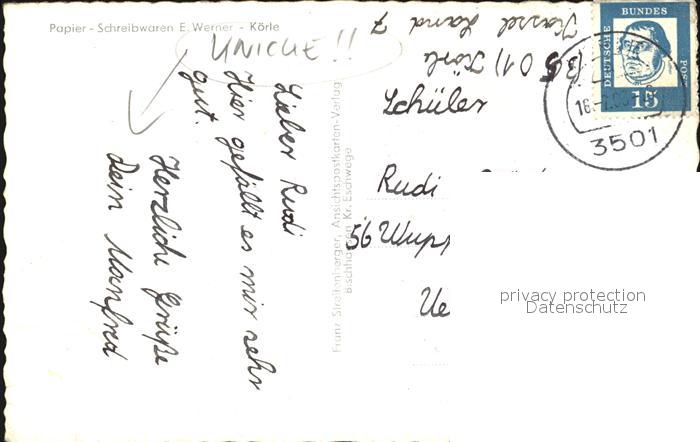 Papier - Schreibwaren E. Werner - Körle
UNICHE!!
Lieber Rudi
Hier gefällt es mir sehr
gut.
Herzliche Grüße
Dein Manfred
Franz Streitenberger, Ansichtspostkarten-Verlag
Bischhausen, Kr. Eschwege
(35 01) Körle
Kassel Land 7
Schüler
Rudi
56 Wupp
Ue
DEUTSCHE
BUNDES
POST
15
3501
privacy protection
Datenschutz